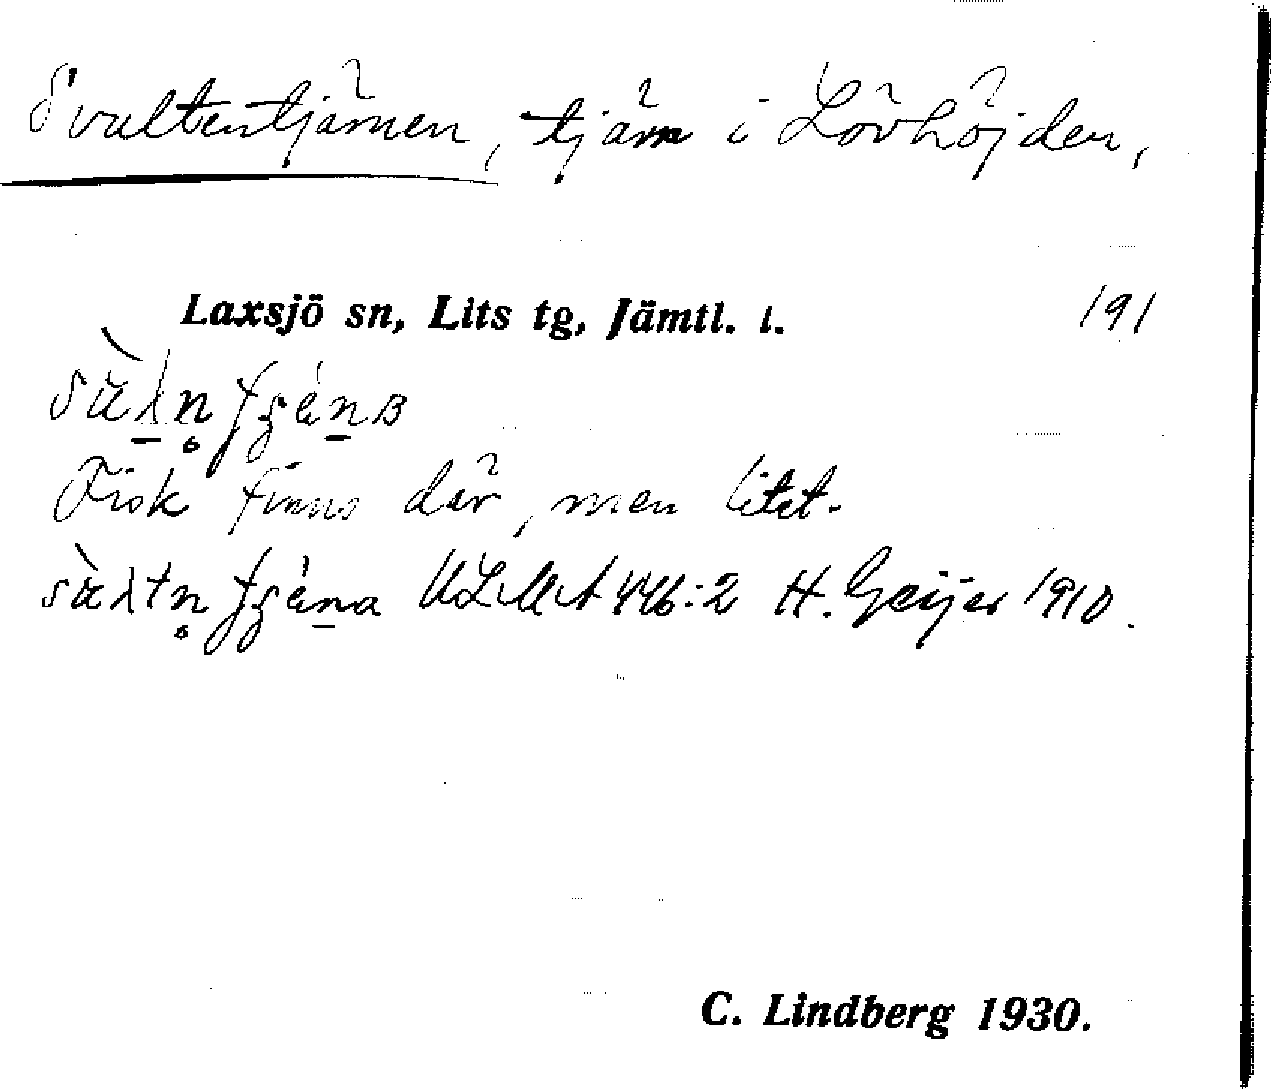 Svaltentjärnen, tjärn i Lövhöjden,
Laxsjö sn, Lits tg, Jämtl. l. 191
Fisk finns där, men litet.
ULMA 446:2 H. Geijer 1910.
C. Lindberg 1930.